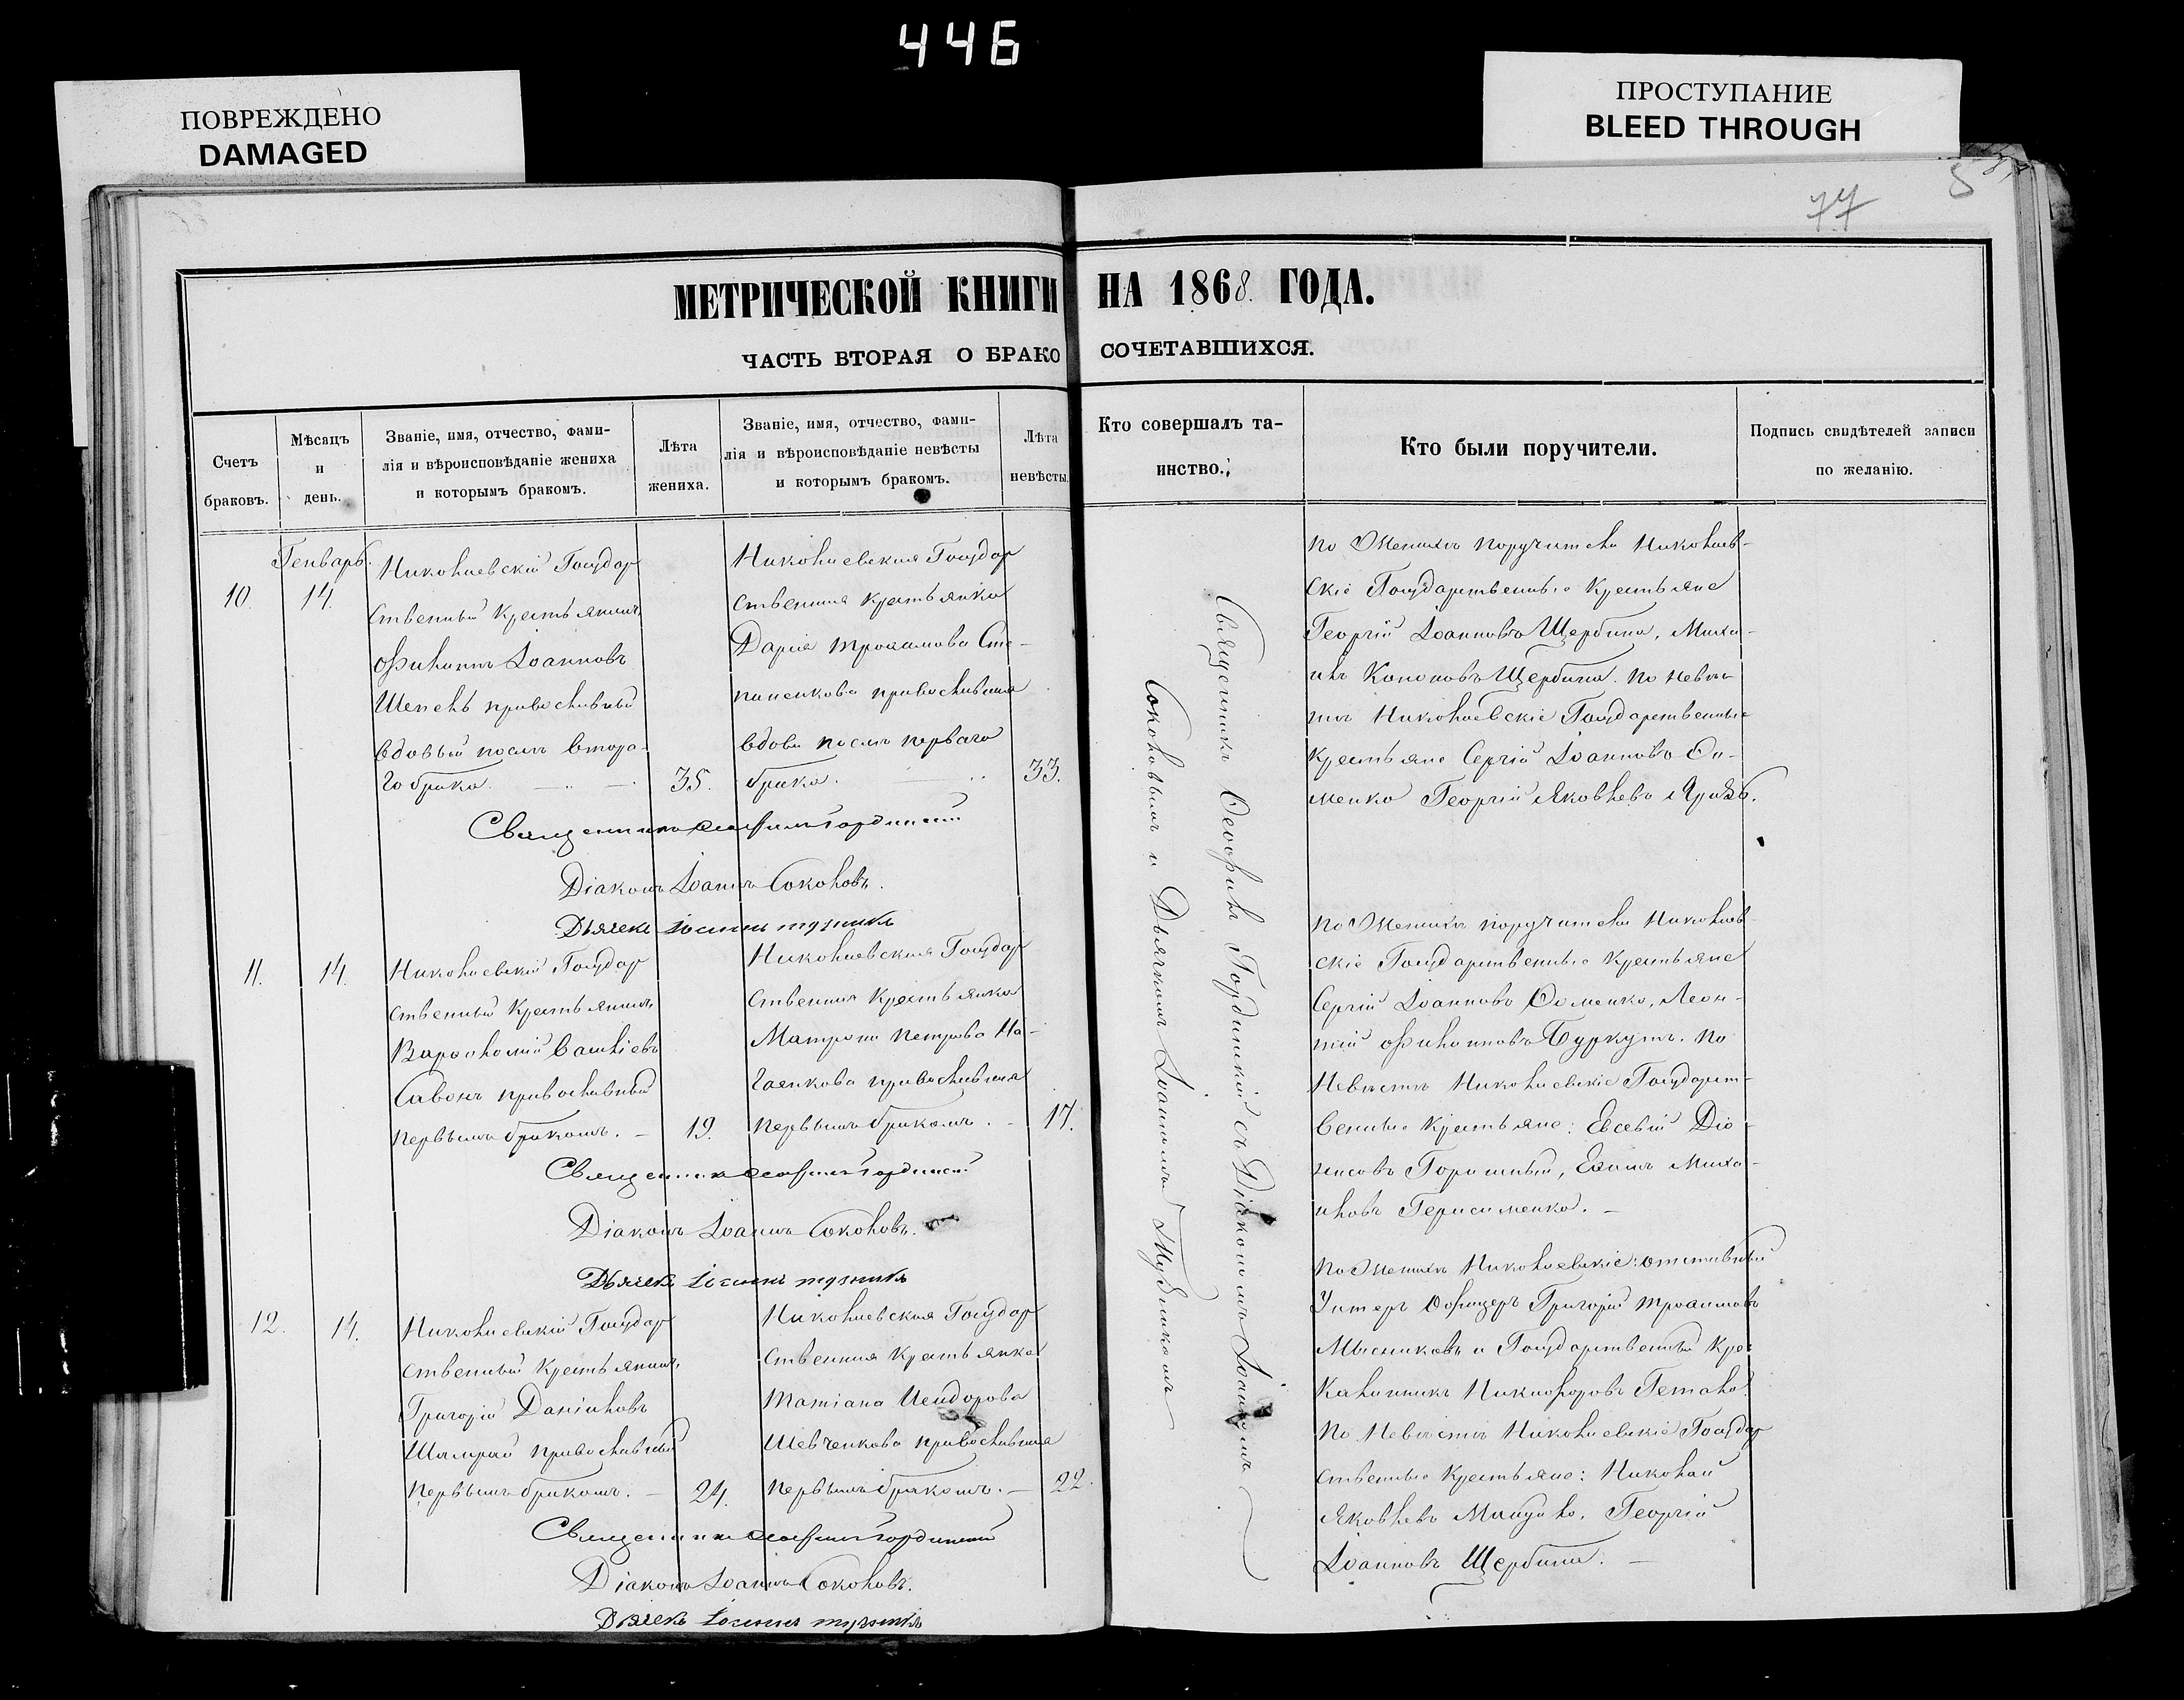 446
ПОВРЕЖДЕНО
DAMAGED
ПРОСТУПАНИЕ
BLEED THROUGH
77
МЕТРИЧЕСКОЙ КНИГИ НА 1868. ГОДА.
ЧАСТЬ ВТОРАЯ О БРАКОСОЧЕТАВШИХСЯ.
Счетъ
браковъ.
Мѣсяцъ
и
день.
Званіе, имя, отчество, фами-
лія и вѣроисповѣданіе жениха
и которымъ бракомъ.
Лѣта
жениха.
Званіе, имя, отчество, фами-
лія и вѣроисповѣданіе невѣсты
и которымъ бракомъ.
Лѣта
невѣсты.
Кто совершалъ та-
инство.
Кто были поручители.
Подпись свидѣтелей записи
по желанію.
Генварь.
10.
14.
Николаевскій Государ
ственный Крестьянинъ
Филиппъ Іоанновъ
Шепель православный
вдовый послѣ втора-
го брака.
35.
Николаевская Государ
ственная Крестьянка
Дарія Трофимова Сте-
паненкова православная
вдова послѣ перваго
брака.
33.
По Женихѣ поручители Николаев-
скіе Государственные Крестьяне
Георгій Іоанновъ Щербина, Миха-
илъ Кононовъ Щербина. По невѣс-
тѣ Николаевскіе Государственные
Крестьяне Сергій Іоанновъ
Георгій Яковлевъ
Священникъ Ѳеофилъ Гординскій
Діаконъ Іоаннъ Соколовъ.
Дьячекъ Іоаннъ
11.
14.
Николаевскій Государ
ственный Крестьянинъ
Варѳоломій Савонъ православный
первымъ бракомъ.
19.
Николаевская Государ
ственная Крестьянка
Матрона Петрова На-
гаенкова православная
первымъ бракомъ.
17.
По Женихѣ поручители Николаев-
скіе Государственные Крестьяне
Сергій Іоанновъ Ѳоменко, Леон-
тій Филипповъ Буркутъ. По
Невѣстѣ Николаевскіе Государст-
венные Крестьяне: Евсевій Діо-
нисовъ Миха-
иловъ Герасименко.
Священникъ Ѳеофилъ Гординскій
Діаконъ Іоаннъ Соколовъ.
Дьячекъ Іоаннъ
12.
14.
Николаевскій Государ
ственный Крестьянинъ
Григорій Даніиловъ
Шамрай православный
первымъ бракомъ.
24.
Николаевская Государ
ственная Крестьянка
Татіана Исидорова
Шевченкова православная
первымъ бракомъ.
22.
По Женихѣ Николаевскіе: отставный
Унтеръ Офицеръ Григорій Трофимовъ
Мысниковъ и Государственный Кре:
Каллиникъ Никифоровъ
По Невѣстѣ Николаевскіе Государ
ственные Крестьяне: Николай
Яковлевъ Георгій
Іоанновъ Щербина.
Священникъ Ѳеофилъ Гординскій
Діаконъ Іоаннъ Соколовъ.
Дьячекъ Іоаннъ
Священникъ Ѳеофилъ Гординскій съ Діакономъ Іоанномъ
Соколовымъ и Дьячкомъ Іоанномъ